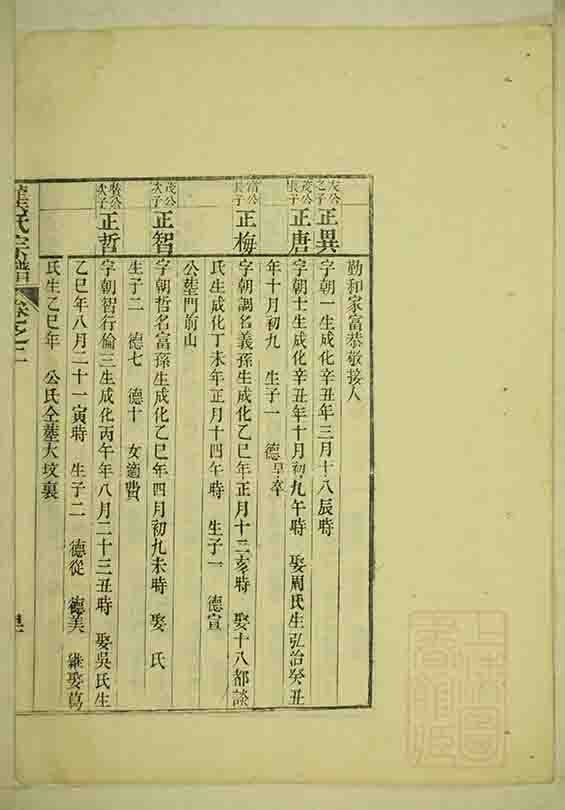 勤和家富恭敬接人
公之子 正異 字朝一生成化辛丑年三月十八辰時
茂公長子 正唐 字朝士生成化辛丑年十月初九午時 娶周氏生弘治癸丑
年十月初九 生子一 德早卒
富公長子 正梅 字朝調名義孫生成化乙巳年正月十三亥時 娶十八都談
氏生成化丁未年正月十四午時 生子一 德宣
公塟門前山
茂公次子 正智 字朝哲名富孫生成化乙巳年四月初九未時 娶 氏
生子二 德七 德十 女適費
公次子 正哲 字朝智行倫三生成化丙午年八月二十三丑時 娶吳氏生
乙巳年八月二十一寅時 生子二 德從 德美 継娶葛
氏生乙巳年 公氏仝塟大坟裏
氏宗譜 卷之二